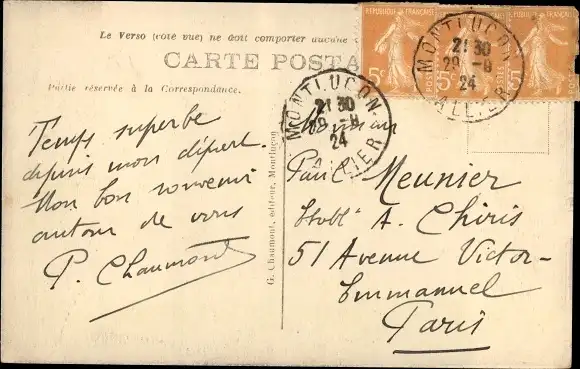 Le Verso (côté vue) ne doit comporter aucune
CARTE POSTA
Partie réservée à la Correspondance.
Temps superbe
depuis mon départ.
Mon bon souvenir
autour de vous
P. Chaumont
G. Chaumont, éditeur, Montluçon
REPUBLIQUE FRANÇAISE
5c
POSTES
MONTLUÇON
21 30
29 -8
24
ALLIER
MONTLUÇON
21 30
29 -8
24
ALLIER
Monsieur
Paul Meunier
Etabl^ts A. Chiris
51 Avenue Victor-
Emmanuel
Paris